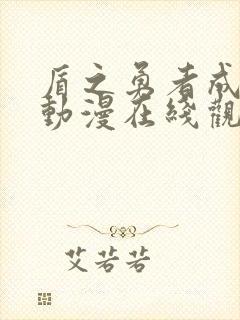 盾之勇者成
動漫在綫觀
艾若若